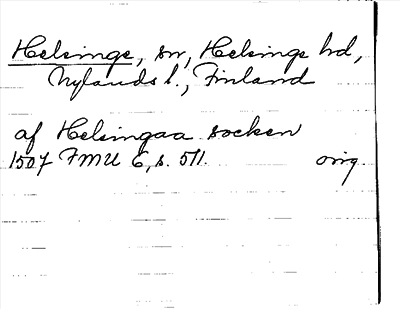 Helsinge, sn, Helsinge hd,
Nylands l., Finland
af Helsingaa socken
1507 FMU 6, s. 511. orig